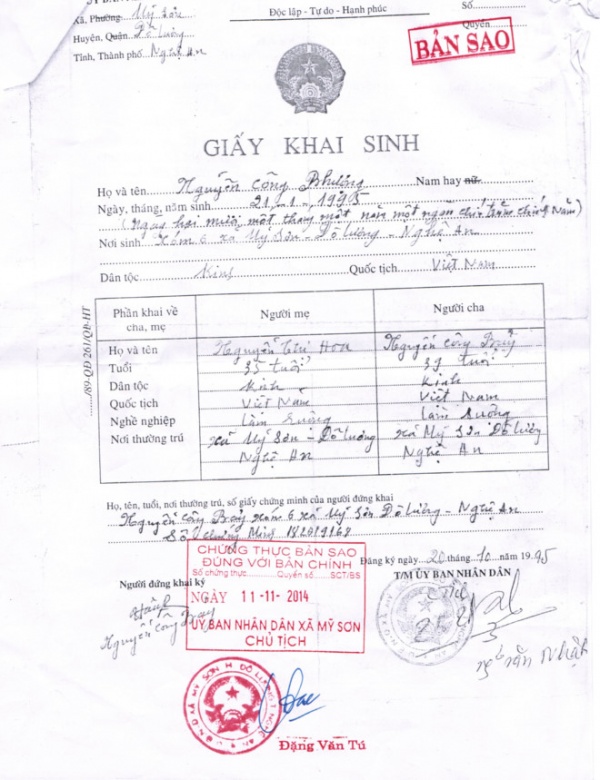 Xã, Phường Mỹ Sơn
Độc lập - Tự do - Hạnh phúc
Số
Huyện, Quận Đô Lương
Quyển
Tỉnh, Thành phố Nghệ An
BẢN SAO
GIẤY KHAI SINH
Họ và tên Nguyễn Công Phượng Nam hay nữ
Ngày, tháng, năm sinh 21.1.1995
(Ngày hai mươi một tháng một năm một ngàn chín trăm chín năm)
Nơi sinh Xóm 6 xã Mỹ Sơn - Đô Lương - Nghệ An
Dân tộc Kinh Quốc tịch Việt Nam
Phần khai về cha, mẹ Người mẹ Người cha
Họ và tên Nguyễn Thị Hoa Nguyễn Công Bảy
Tuổi 35 tuổi 39 tuổi
Dân tộc Kinh Kinh
Quốc tịch Việt Nam Việt Nam
Nghề nghiệp Làm ruộng Làm ruộng
Nơi thường trú xã Mỹ Sơn - Đô Lương xã Mỹ Sơn Đô Lương
Nghệ An Nghệ An
...../89-QĐ 261/QĐ-HT
Họ, tên, tuổi, nơi thường trú, số giấy chứng minh của người đứng khai
Nguyễn Công Bảy xóm 6 xã Mỹ Sơn Đô Lương - Nghệ An
Số chứng minh
CHỨNG THỰC BẢN SAO
ĐÚNG VỚI BẢN CHÍNH
Số chứng thực Quyển số SCT/BS
NGÀY 11-11-2014
ỦY BAN NHÂN DÂN XÃ MỸ SƠN
CHỦ TỊCH
Đăng ký ngày 20 tháng 10 năm 1995
Người đứng khai ký
T/M ỦY BAN NHÂN DÂN
Nguyễn Công Bảy
Đặng Văn Tú